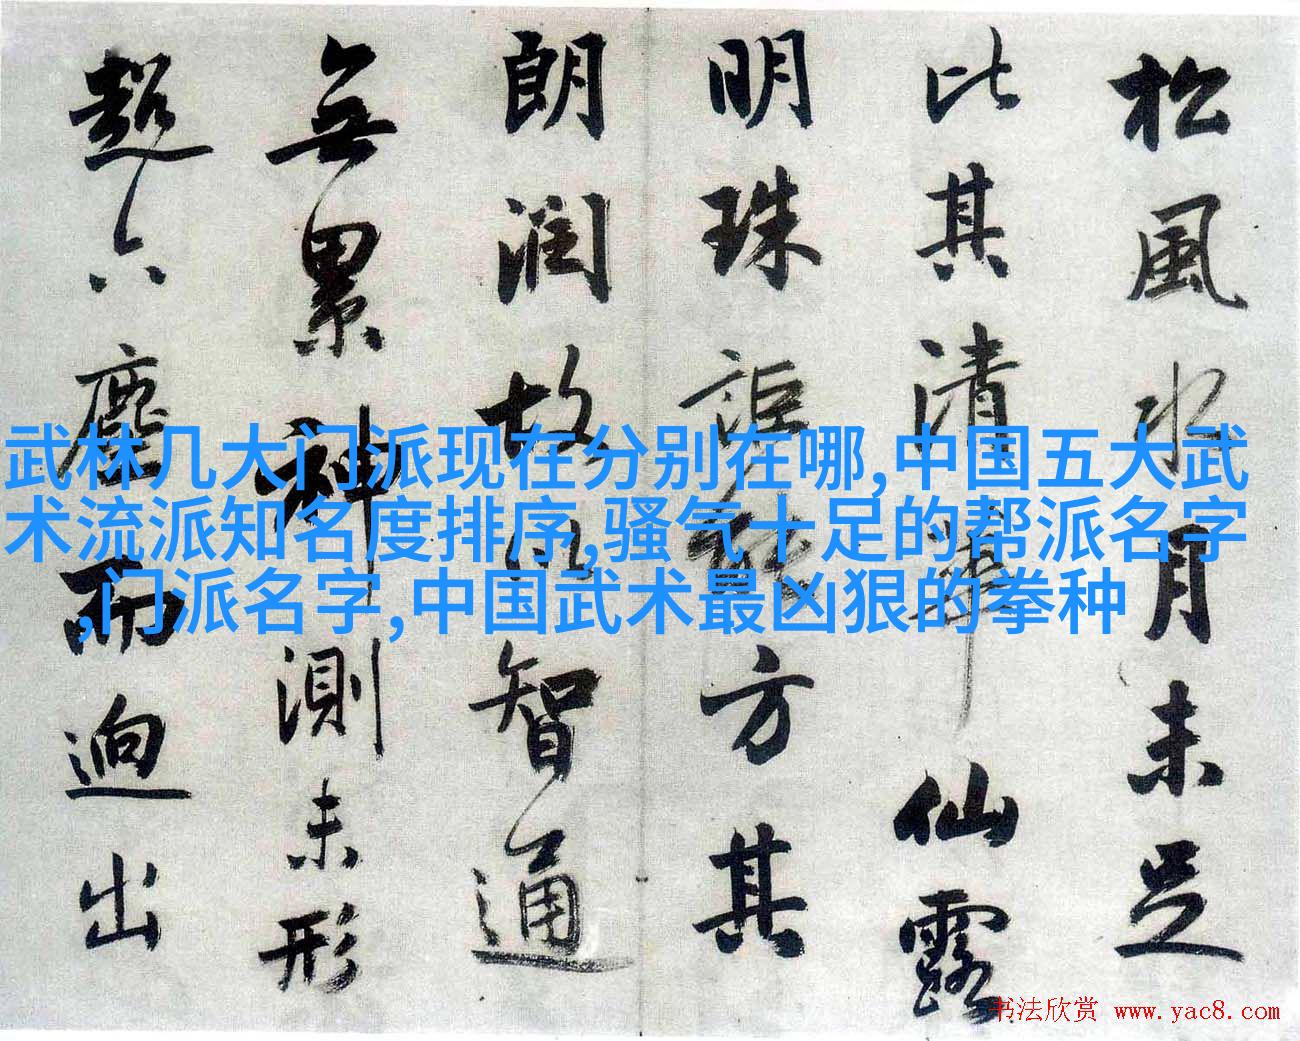 松風水月未足
比其清華仙露
明珠詎能方其
朗潤故以智通
無累神測未形
超六塵而逈出
武林几大门派现在分别在哪,中国五大武
术流派知名度排序,骚气十足的帮派名字
,门派名字,中国武术最凶狠的拳种
书法欣赏 www.yac8.com